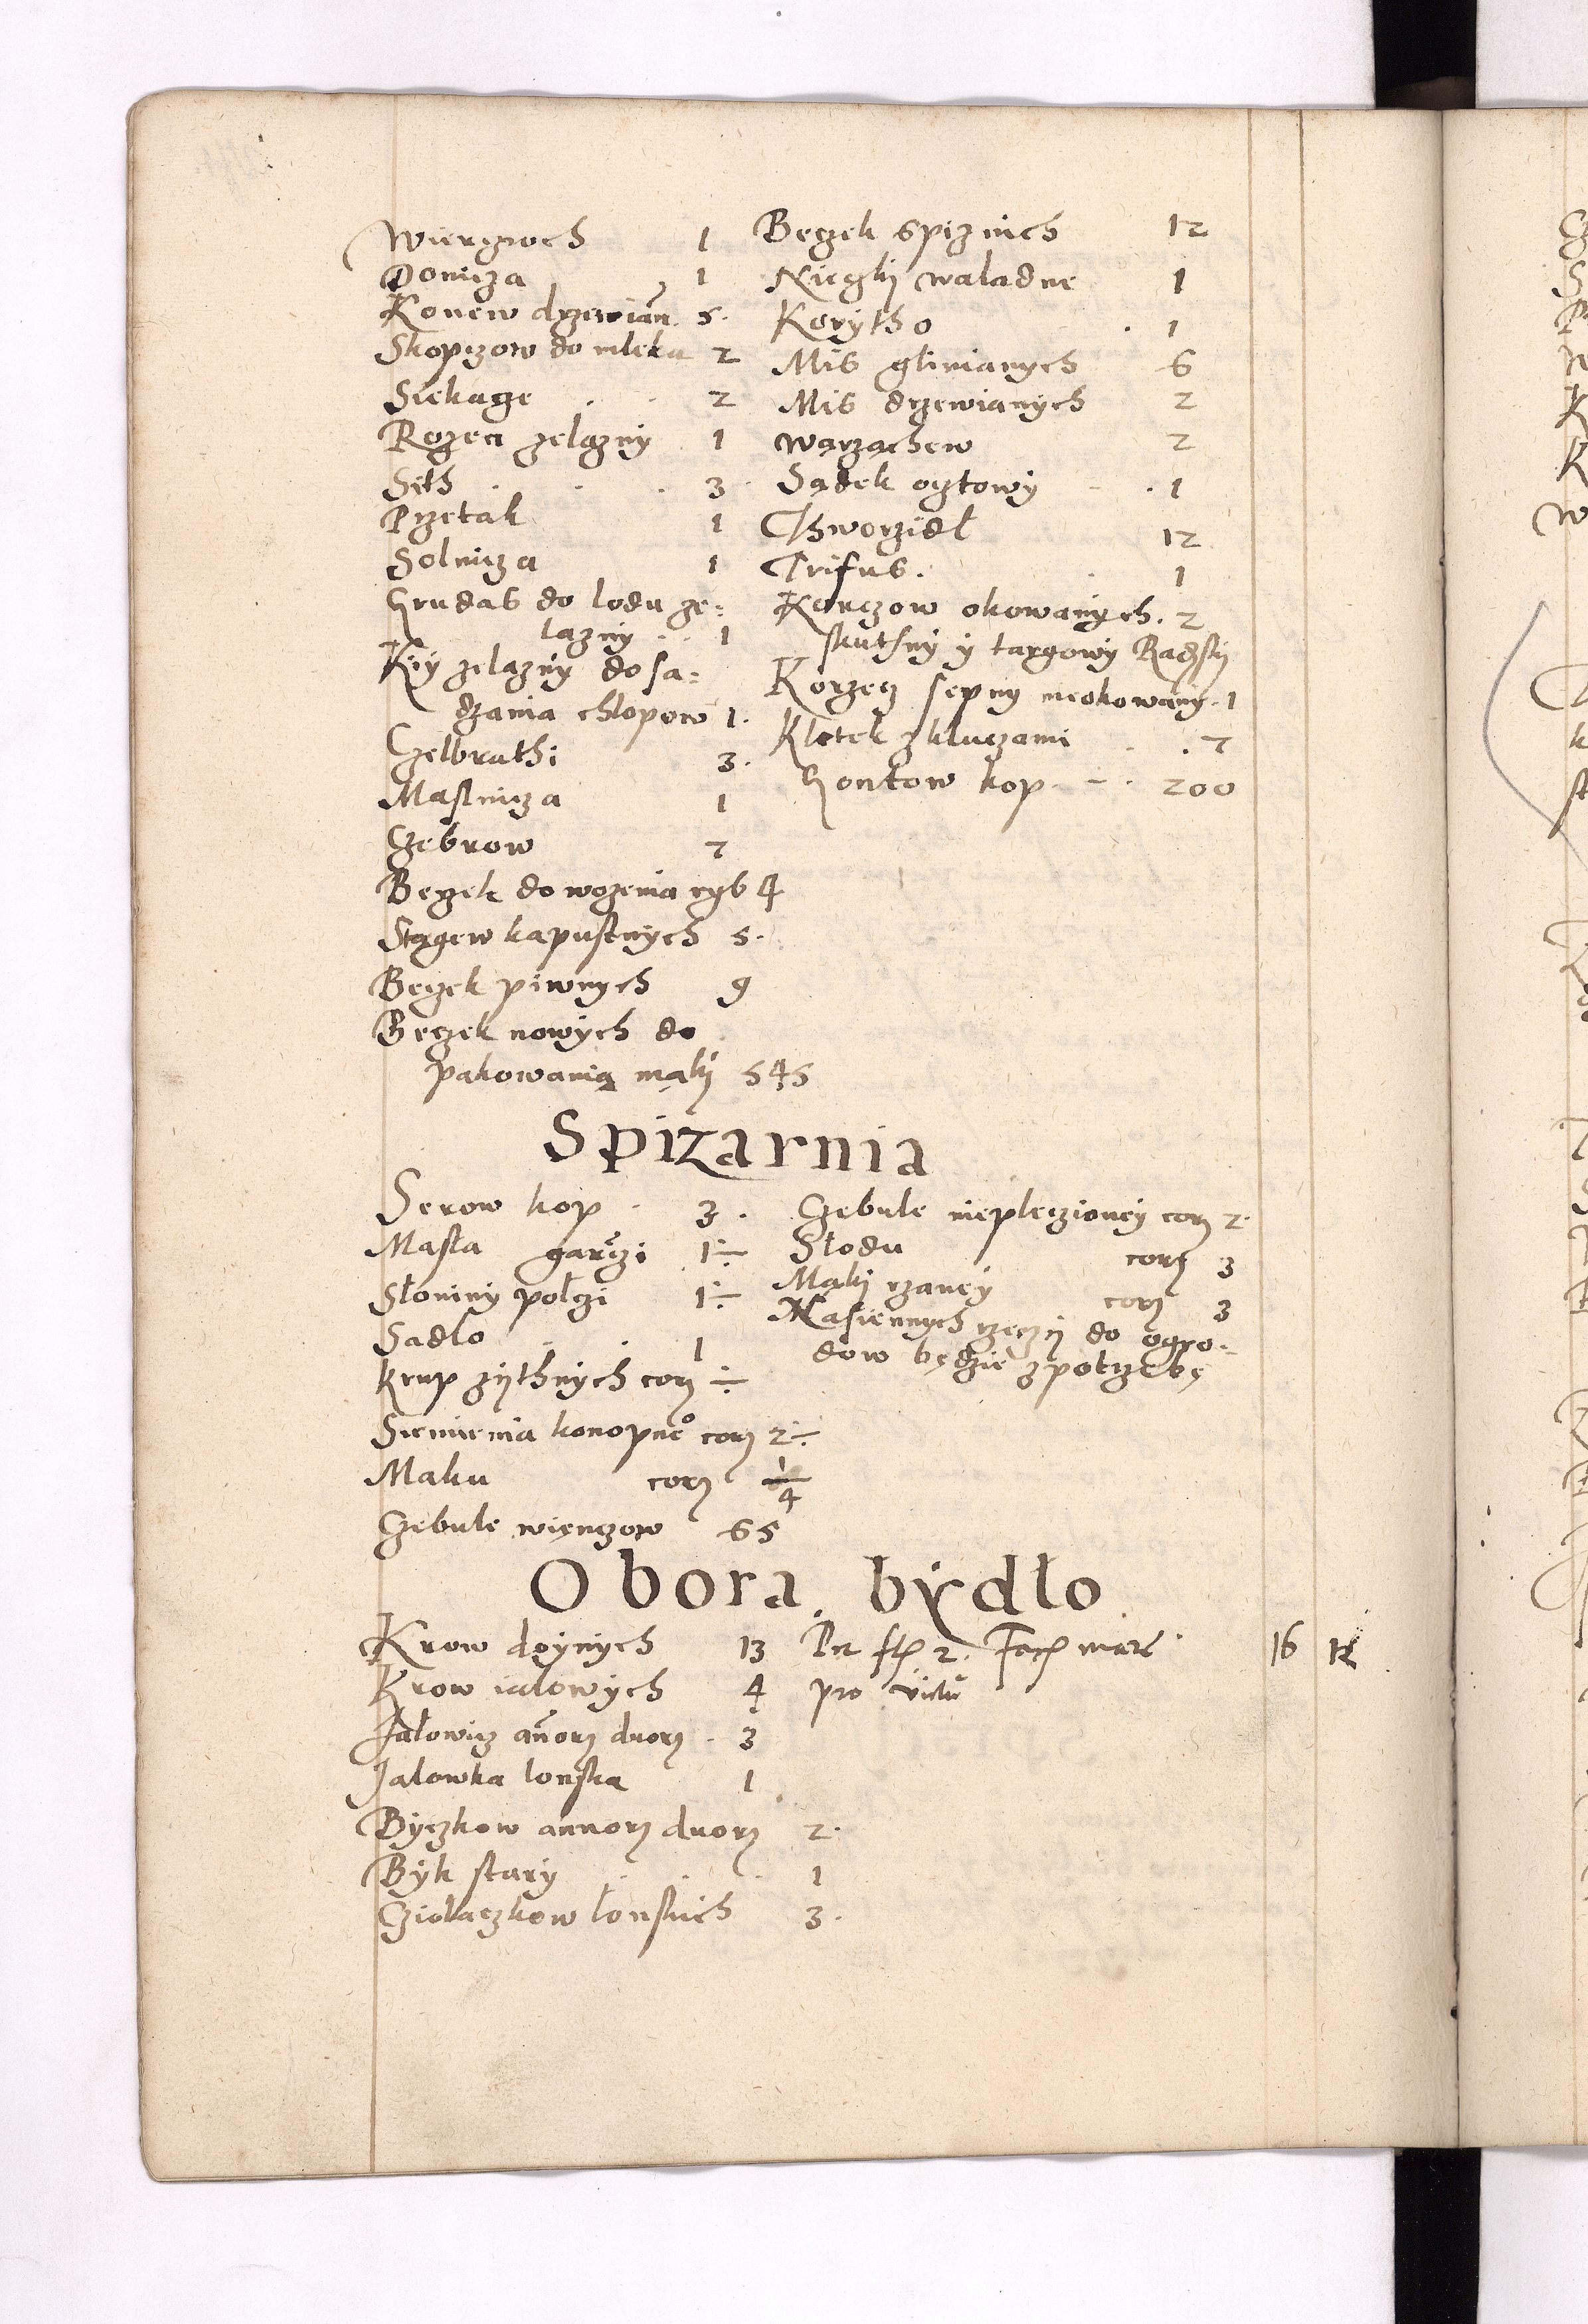 Wierzioch 1
Donicza 1
Konew drzewian. 5.
Skopczow do mleka 2
Siekacze 2
Rozen zelazny 1
Sith 3
Przetak 1
Solnicza 1
Hrudas do lodu ze=
lazny 1
Kiy zelazny do sa=
dzania chlopow 1.
Czelbrathi 3.
Maslnicza 1
Czebrow 7
Beczek do wozenia ryb 4
Stągew kapustnych 5.
Beczek piwnych 9
Beczek nowych do
pakowania mąki 545
Beczek spiznich 12
Nieczki waladne 1
Korytho 1
Mis glinianych 6
Mis drzewianych 2
Warzachew 2
Sądek octowy 1
Thworzidł 12
Trifus. 1
Korczow okowanych. 2
skuthny y targowy
Korzecz sepny nieokowany. 1
Klotek z kluczami 7
Gontow kop 200
Spizarnia
Serow kop 3.
Masla garczi 1÷
Słoniny polczi 1÷
Sadlo 1
Krup zythnych cor ÷
Siemienia konopneo cor 2÷
Maku cor 1/4
Czebule więnczow 65
Czebule niepleczioney cor 2.
Słodu cor 3
Mąki rzaney cor 3
Nasiennych rzeczy do ogro=
dow będzie z potrzebę
Obora bydło
Krow doynych 13 2. 16
Krow iałowych 4 pro victu
Jałowicz anor duor 3
Jalowka lonska 1
Byczkow annor duor 2.
Byk stary 1
Cziołaczkow łonskich 3.